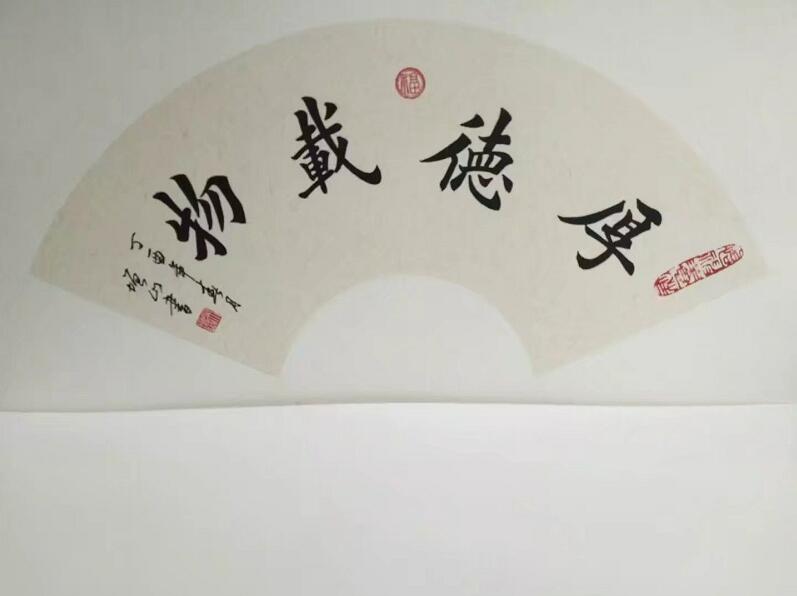 厚德載物
福
丁酉年春月
山書